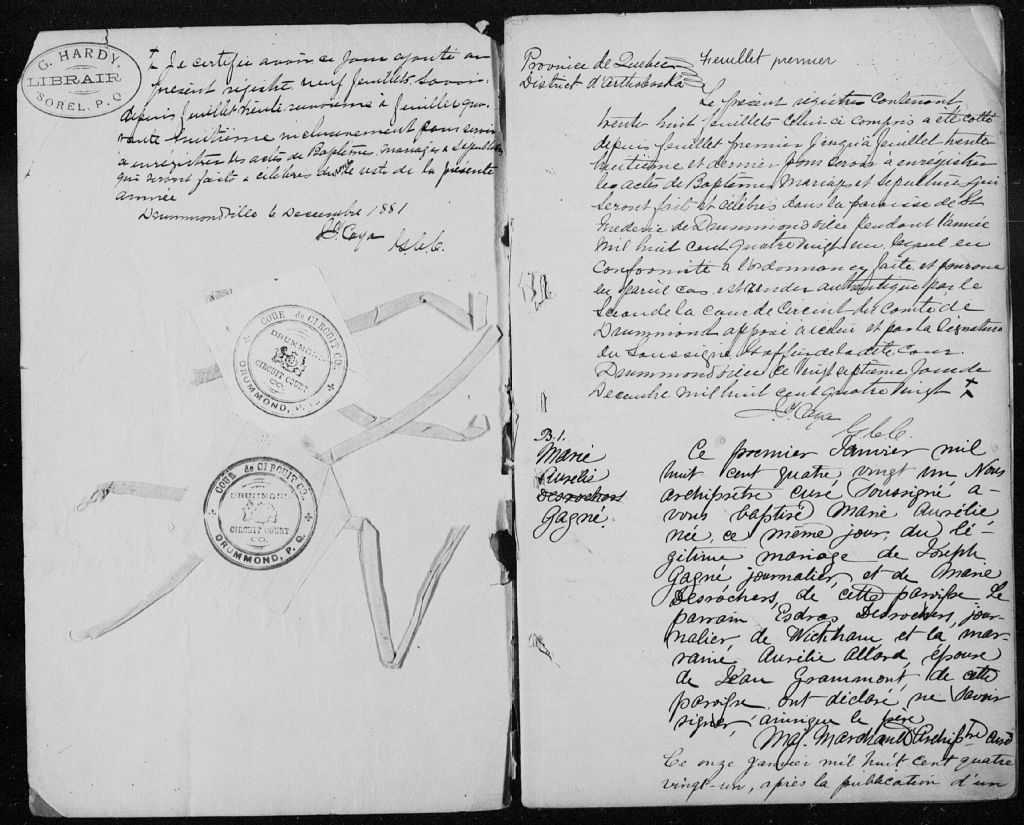 G. HARDY,
LIBRAIR
SOREL, P. Q.
+ Je certifie avoir ce jour ajouté au
présent régistre neuf feuillets savoir:
depuis feuillet trente neuvième à feuillet qua-
rante huitième inclusivement pour servir
à enregistrer les actes de Baptême mariages & sépultures
qui seront faits & célébrés durant le reste de la présente
année
Drummondville 6 Decembre 1881
Caya
G.C.C.
COUR de CIRCUIT CO.
DRUMMOND
CIRCUIT COURT
CO.
DRUMMOND, P. Q.
COUR de CIRCUIT CO.
DRUMMOND
CIRCUIT COURT
CO.
DRUMMOND, P. Q.
Province de Quebec
District d'Arthabaska
Feuillet premier
Le présent registre contenant
trente huit feuillets celui ci compris a été coté
depuis feuillet premier jusqu'à feuillet trente
huitième et dernier pour servir à enregistrer
les actes de Baptêmes Mariages et sepulture qui
seront faits et célébrés dans la paroisse de St
Frederic de Drummondville pendant l'année
Mil huit cent quatre vingt un, lequel en
conformité à l'ordonnance faite et pourvue
en pareil cas, est rendu authentique par le
Sceau de la cour de Circuit du Comté de
Drummond apposé et par la signature
du soussigné, Greffier de la dite Cour.
Drummondville ce vingt septième jour de
Decembre mil huit cent quatre vingt +
Caya
G.C.C.
B. 1.
Marie
Aurélie
Desrochers
Gagné.
Ce premier Janvier mil
huit cent quatre vingt un, Nous
archiprêtre curé soussigné a-
vons baptisé Marie Aurélie
née ce même jour, du lé-
gitime mariage de Joseph
Gagné journalier, et de Marie
Desrochers, de cette paroisse. Le
parrain Esdras Desrochers, jour-
nalier, de Wickham et la mar-
raine Aurélie Allard, épouse
de Jean Grammont, de cette
paroisse ont déclaré ne savoir
signer, ainsique le père
Maj. Marchand Archiptre curé
Ce onze janvier mil huit cent quatre
vingt-un, après la publication d'un